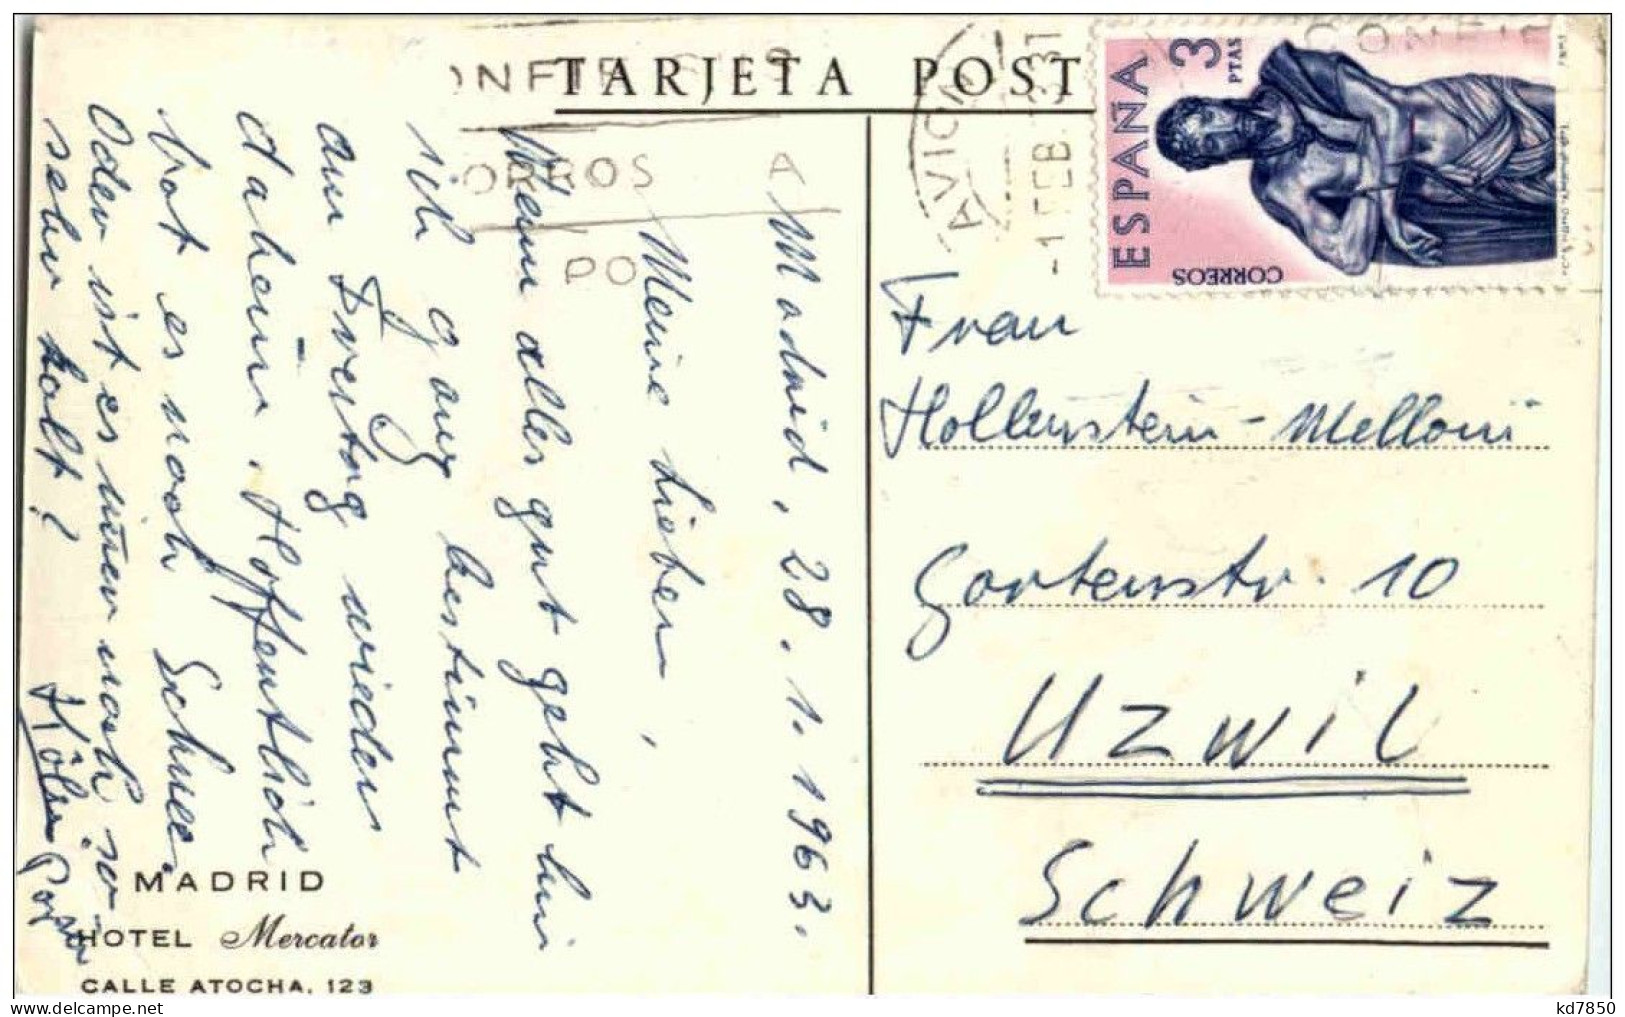 TARJETA POST
ESPAÑA
3
PTAS
CORREOS
AVION
-1 FEB.
Madrid, 28.1.1963.
Meine Lieben,
Wenn alles gut geht bin
ich ganz bestimmt
am Freitag wieder
daheim. Hoffentlich
hat es noch Schnee.
Oder ist es immer noch so
sehr kalt?
MADRID
HOTEL Mercator
CALLE ATOCHA, 123
Frau
Hollenstein-Melloni
Gartenstr. 10
Uzwil
Schweiz
kd7850